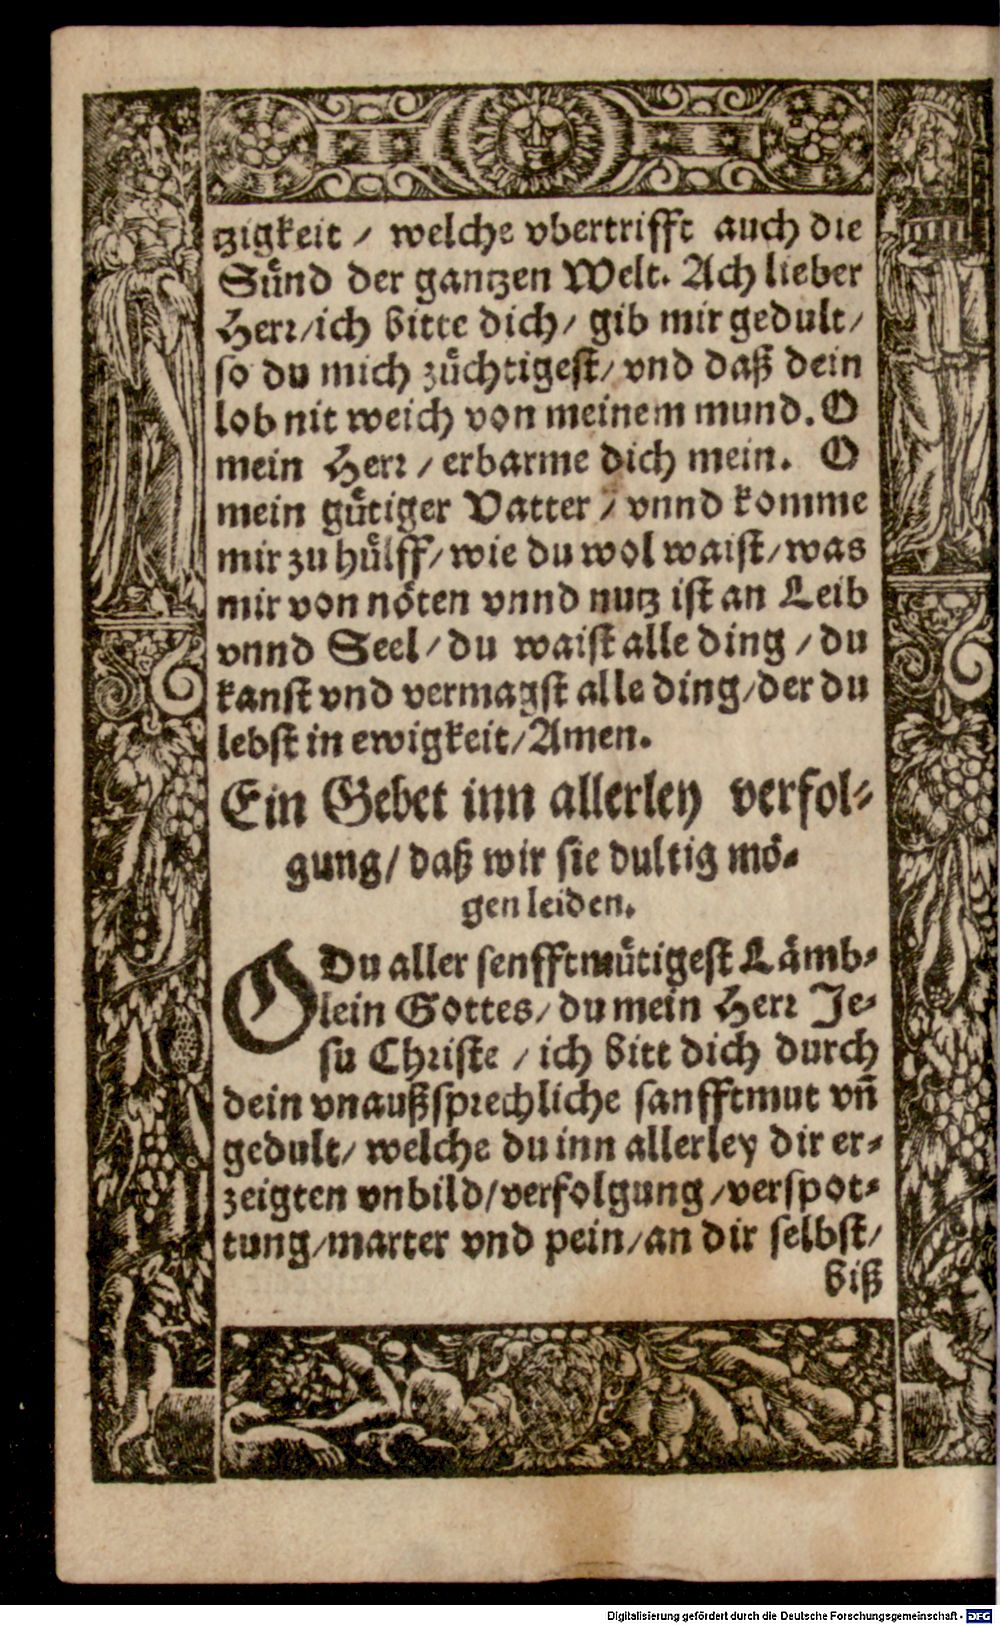 tzigkeit / welche vbertrifft auch die
Suͤnd der gantzen Welt. Ach lieber
Herr/ich bitte dich/ gib mir gedult/
so du mich zuͤchtigest/ vnd daß dein
lob nit weich von meinem mund. O
mein Herr / erbarme dich mein. O
mein guͤtiger Vatter / vnnd komme
mir zu huͤlff/ wie du wol waist/ was
mir von noͤten vnnd nutz ist an Leib
vnnd Seel/ du waist alle ding / du
kanst vnd vermagst alle ding/der du
lebst in ewigkeit/Amen.
Ein Gebet inn allerley verfol-
gung/ daß wir sie dultig moͤ-
gen leiden.
ODu aller senfftmuͤtigest Laͤmb-
lein Gottes/ du mein Herr Je-
su Christe / ich bitt dich durch
dein vnaußsprechliche sanfftmut vn̄
gedult/ welche du inn allerley dir er-
zeigten vnbild/verfolgung /verspot-
tung/marter vnd pein/an dir selbst/
biß
Digitalisierung gefördert durch die Deutsche Forschungsgemeinschaft - DFG